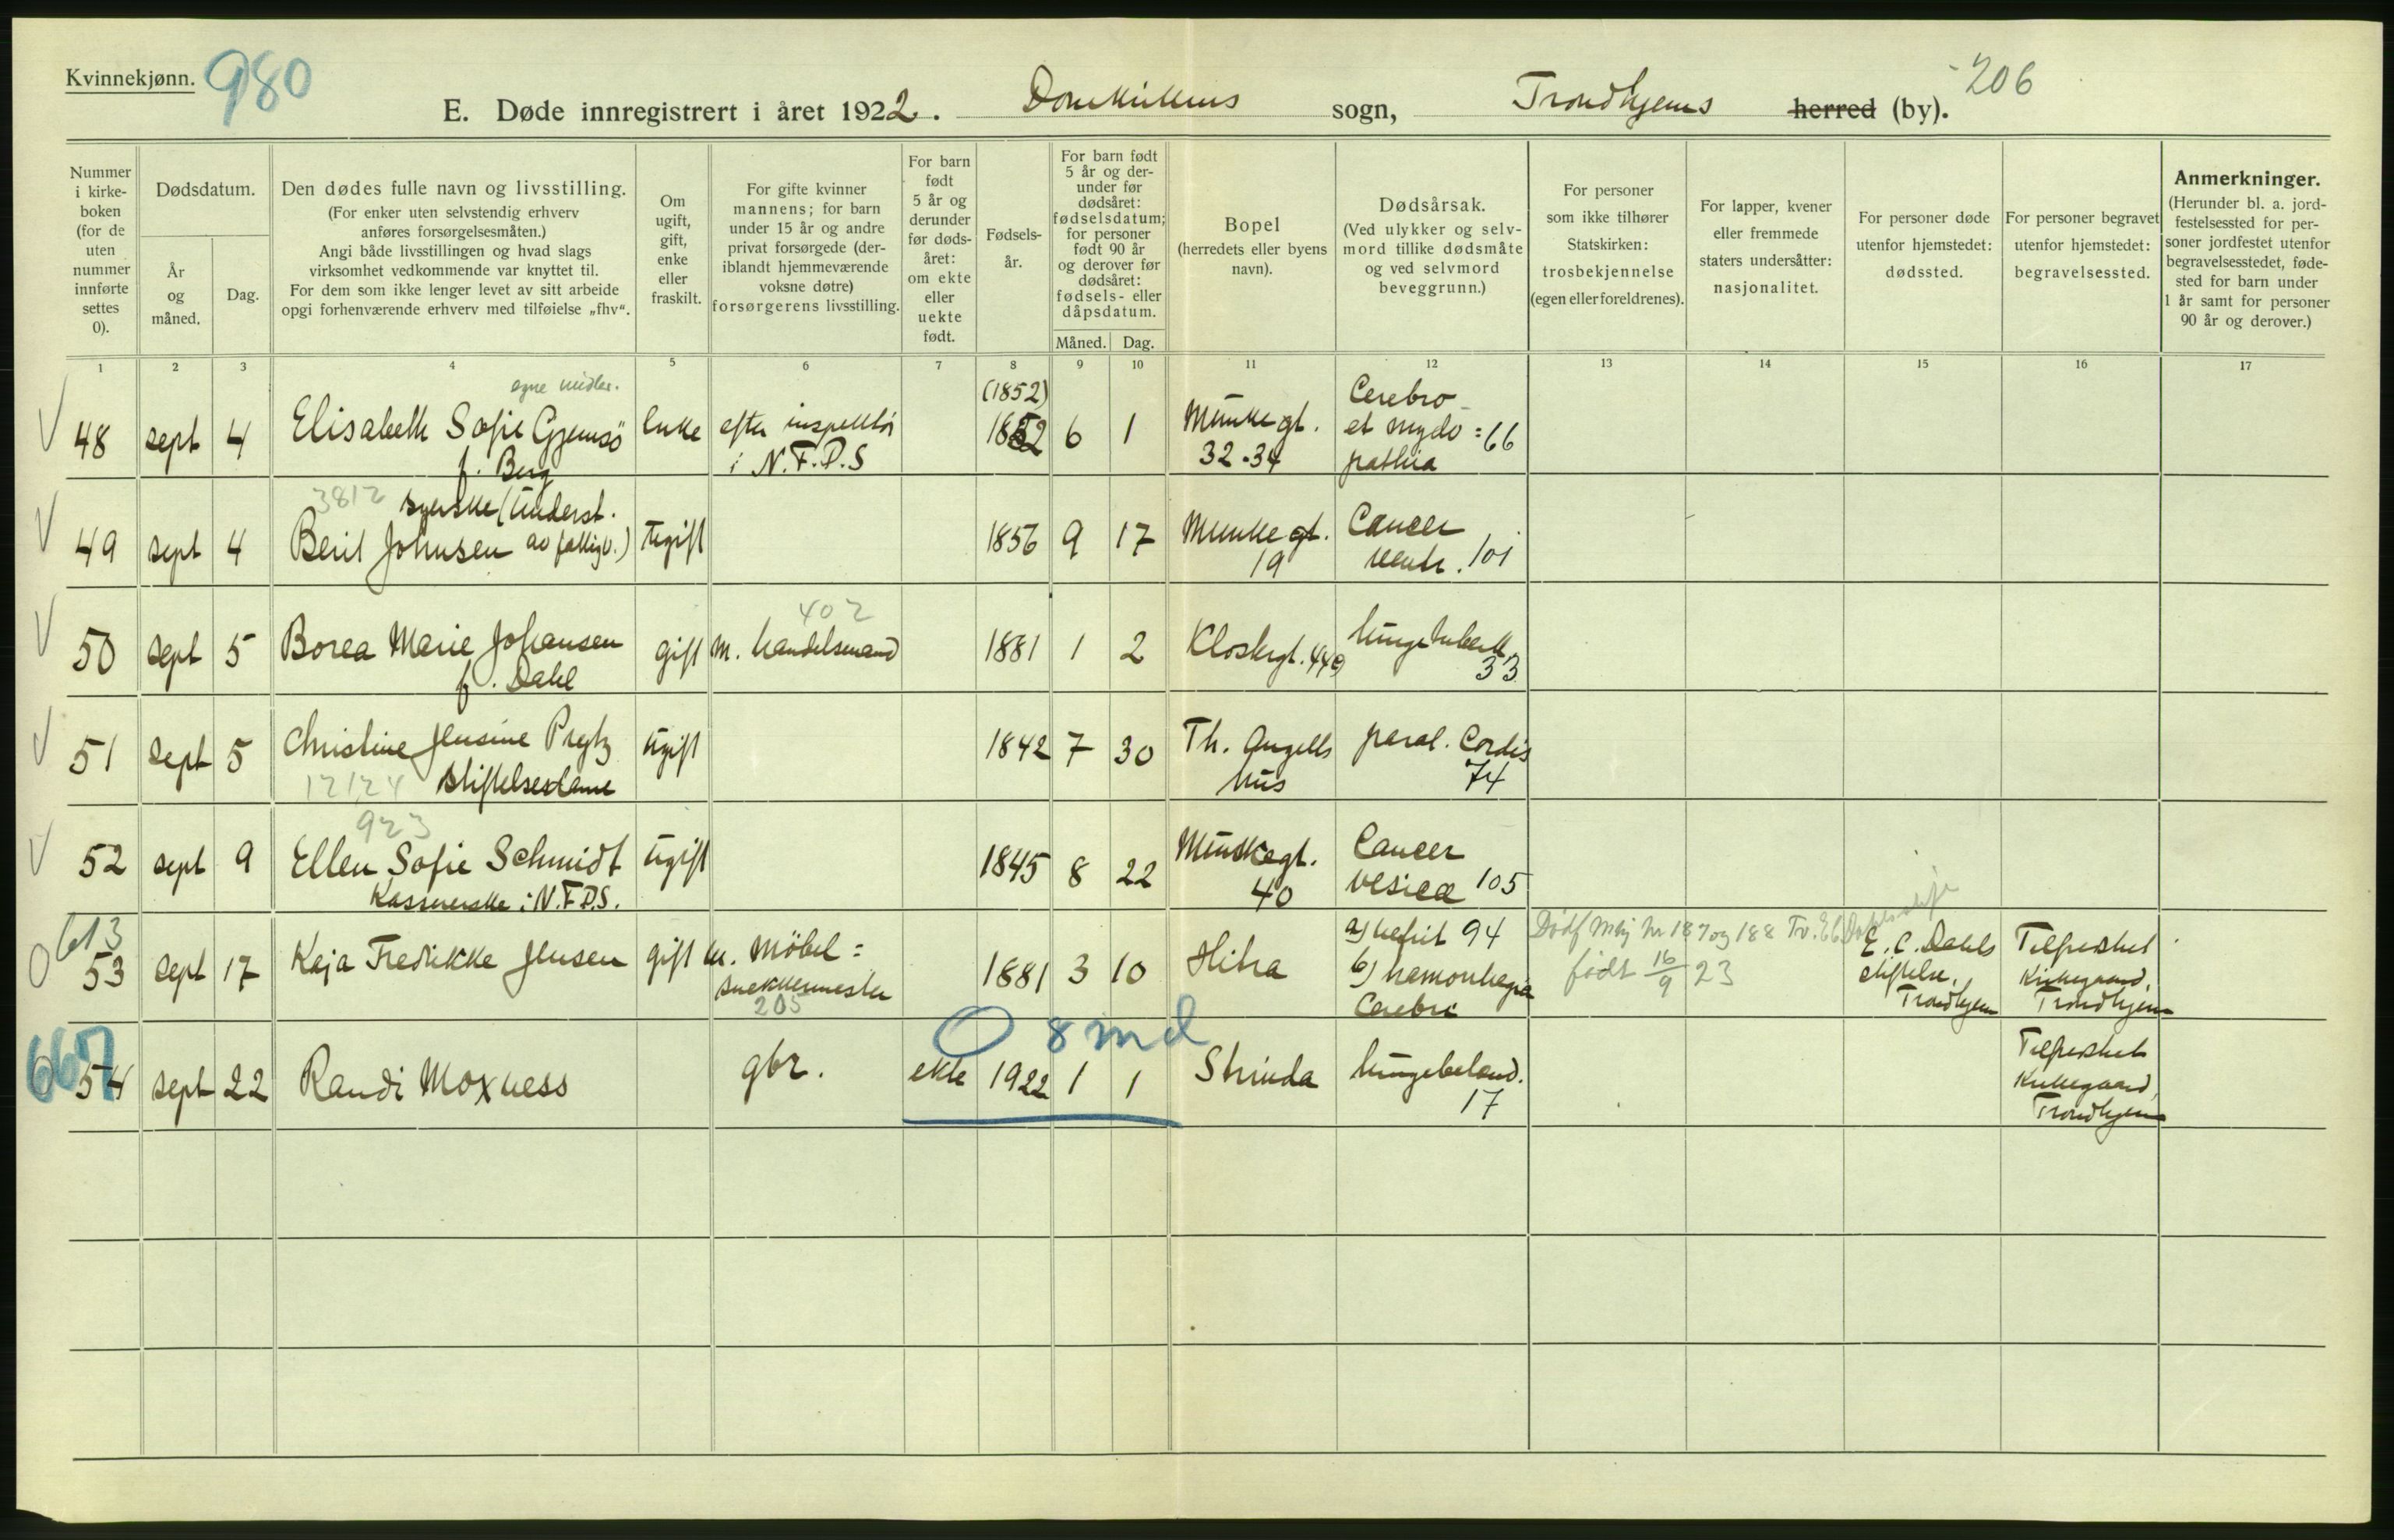 Kvinnekjønn.
980
E. Døde innregistrert i året 1922. Domkirkens sogn, Trondhjems herred (by).
206
Nummer i kirke-boken (for de uten nummer innførte settes 0).
Dødsdatum.
År og måned.
Dag.
Den dødes fulle navn og livsstilling.
(For enker uten selvstendig erhverv anføres forsørgelsesmåten.)
Angi både livsstillingen og hvad slags virksomhet vedkommende var knyttet til.
For dem som ikke lenger levet av sitt arbeide opgi forhenværende erhverv med tilføielse „fhv“.
Om ugift, gift, enke eller fraskilt.
For gifte kvinner mannens; for barn under 15 år og andre privat forsørgede (der-iblandt hjemmeværende voksne døtre) forsørgerens livsstilling.
For barn født 5 år og derunder før døds-året: om ekte eller uekte født.
Fødsels-år.
For barn født 5 år og der-under før dødsåret: fødselsdatum; for personer født 90 år og derover før dødsåret: fødsels- eller dåpsdatum.
Måned. Dag.
Bopel (herredets eller byens navn).
Dødsårsak.
(Ved ulykker og selv-mord tillike dødsmåte og ved selvmord beveggrunn.)
For personer som ikke tilhører Statskirken: trosbekjennelse (egen eller foreldrenes).
For lapper, kvener eller fremmede staters undersåtter: nasjonalitet.
For personer døde utenfor hjemstedet: dødssted.
For personer begravet utenfor hjemstedet: begravelsessted.
Anmerkninger.
(Herunder bl. a. jord-festelsessted for per-soner jordfestet utenfor begravelsesstedet, føde-sted for barn under 1 år samt for personer 90 år og derover.)
1 2 3 4 5 6 7 8 9 10 11 12 13 14 15 16 17
egne midler.
(1852)
48 sept 4 Elisabeth Sofie Gjemsö f. Berg enke efter inspektör i N.F.D.S 1852 6 1 Munkegt. 32-34 Cerebro et myelo = pathia 66
3812 syerske (underst. av fattigv.)
49 sept 4 Berit Johnsen ugift 1856 9 17 Munkegt. 19 Cancer ventr. 101
402
50 sept 5 Borea Marie Johansen f. Dahl gift m. handelsmand 1881 1 2 Klostergt. 44 lungetuberk. 33
51 sept 5 Christine Jensine Preytz stiftelseslame ugift 1842 7 30 Th. Angells hus paral. Cordis 74
12124
923
52 sept 9 Ellen Sofie Schmidt Kassererske i N.F.D.S. ugift 1845 8 22 Munkegt. 40 Cancer vesicæ 105
613
53 sept 17 Kaja Fredrikke Jensen gift m. Möbel= snekkermester 1881 3 10 Hitra a) nefrit 94 b) hæmorrhagia Cerebri
205
Dødf Mkj nr 187 og 188 Tr. E C Dahls stift
født 16/9 23
E. C. Dahls stiftelse, Trondhjem
Tilfredshet Kirkegaard, Trondhjem
667
0 8 md
54 sept 22 Randi Moxness gbr. ekte 1922 1 1 Strinda lungebetænd. 17
Tilfredshet Kirkegaard, Trondhjem